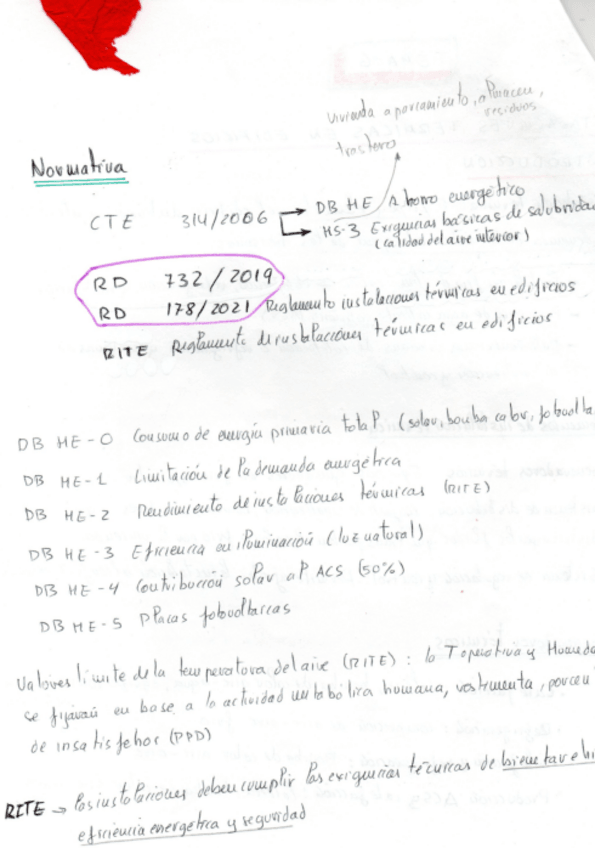 vivienda aparcamiento, almacen,
residuos
trastero
Normativa
CTE 314/2006 → DB HE Ahorro energético
→ HS-3 Exigencias básicas de salubridad
(calidad del aire interior)
RD 732/2019
RD 178/2021 Reglamento instalaciones térmicas en edificios
RITE Reglamento de instalaciones térmicas en edificios
DB HE-0 Consumo de energía primaria total (solar, bomba calor, fotovolta
DB HE-1 Limitación de la demanda energética
DB HE-2 Rendimiento de instalaciones térmicas (RITE)
DB HE-3 Eficiencia en iluminación (luz natural)
DB HE-4 Contribución solar al ACS (50%)
DB HE-5 Placas fotovoltaicas
Valores límite de la temperatura del aire (RITE): la T operativa y Humeda
se fijarán en base a la actividad metabólica humana, vestimenta, porcen
de insatisfehos (PPD)
RITE → las instalaciones deben cumplir las exigencias técnicas de bienestar e hi
eficiencia energética y seguridad